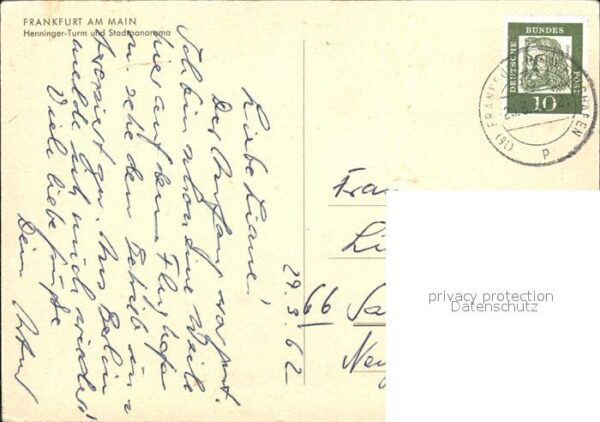 FRANKFURT AM MAIN
Henninger-Turm und Stadtpanorama
DEUTSCHE BUNDES POST
10
(16) FRANKFU HAFEN
P
29.3.62
Liebe Liane!
Der Anfang
Ich bin schon eine Weile
hier auf dem Flughafen
u. sehe den Betrieb
an. Aus Berlin
melde ich mich wieder!
Viele liebe Grüße
Dein
Frau
Li
66 Sa
Neu
privacy protection
Datenschutz